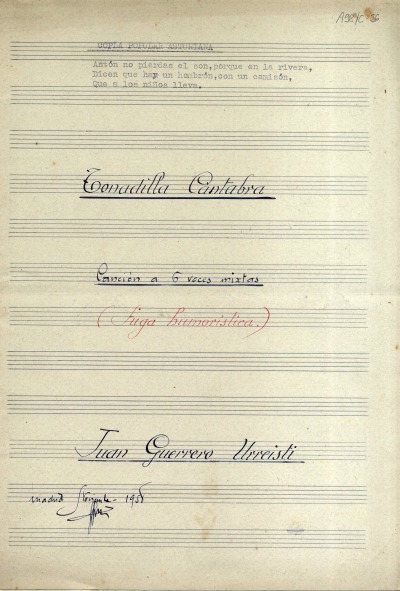 COPLA POPULAR ASTURIANA
Antón no pierdas el son, porque en la rivera,
Dicen que hay un hombrón, con un camisón,
Que a los niños lleva.
Tonadilla Cántabra
Canción a 6 voces mixtas
(Fuga humorística.)
Juan Guerrero Urreisti
Madrid